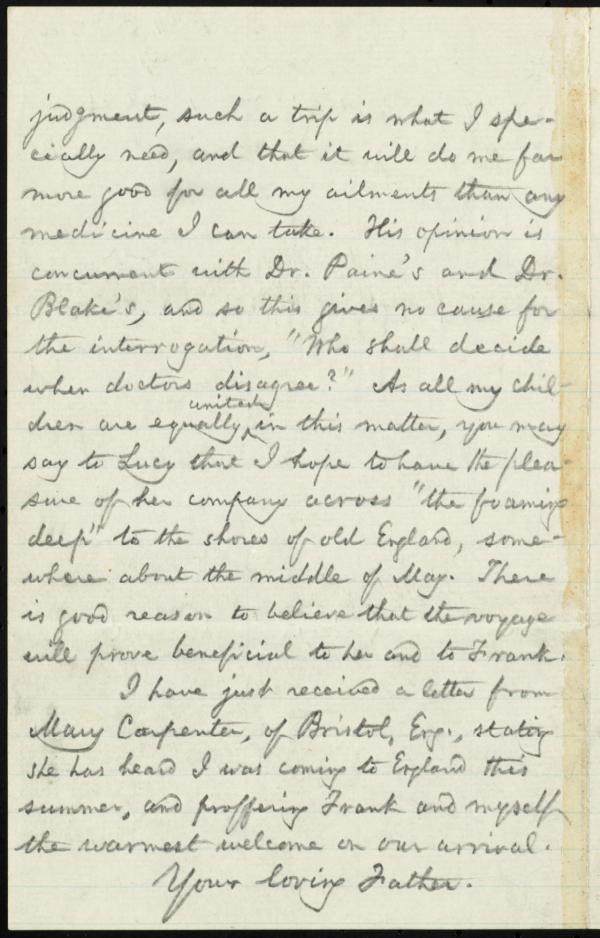 judgment, such a trip is what I spe-
cially need, and that it will do me far
more good for all my ailments than any
medicine I can take. His opinion is
concurrent with Dr. Paine's and Dr.
Blake's, and so this gives no cause for
the interrogation, "Who shall decide
when doctors disagree?" As all my chil-
dren are equally united in this matter, you may
say to Lucy that I hope to have the plea-
sure of her company across "the foaming
deep" to the shores of old England, some-
where about the middle of May. There
is good reason to believe that the voyage
will prove beneficial to her and to Frank.
I have just received a letter from
Mary Carpenter, of Bristol, Eng., stating
she has heard I was coming to England this
summer, and proffering Frank and myself
the warmest welcome on our arrival.
Your loving Father.